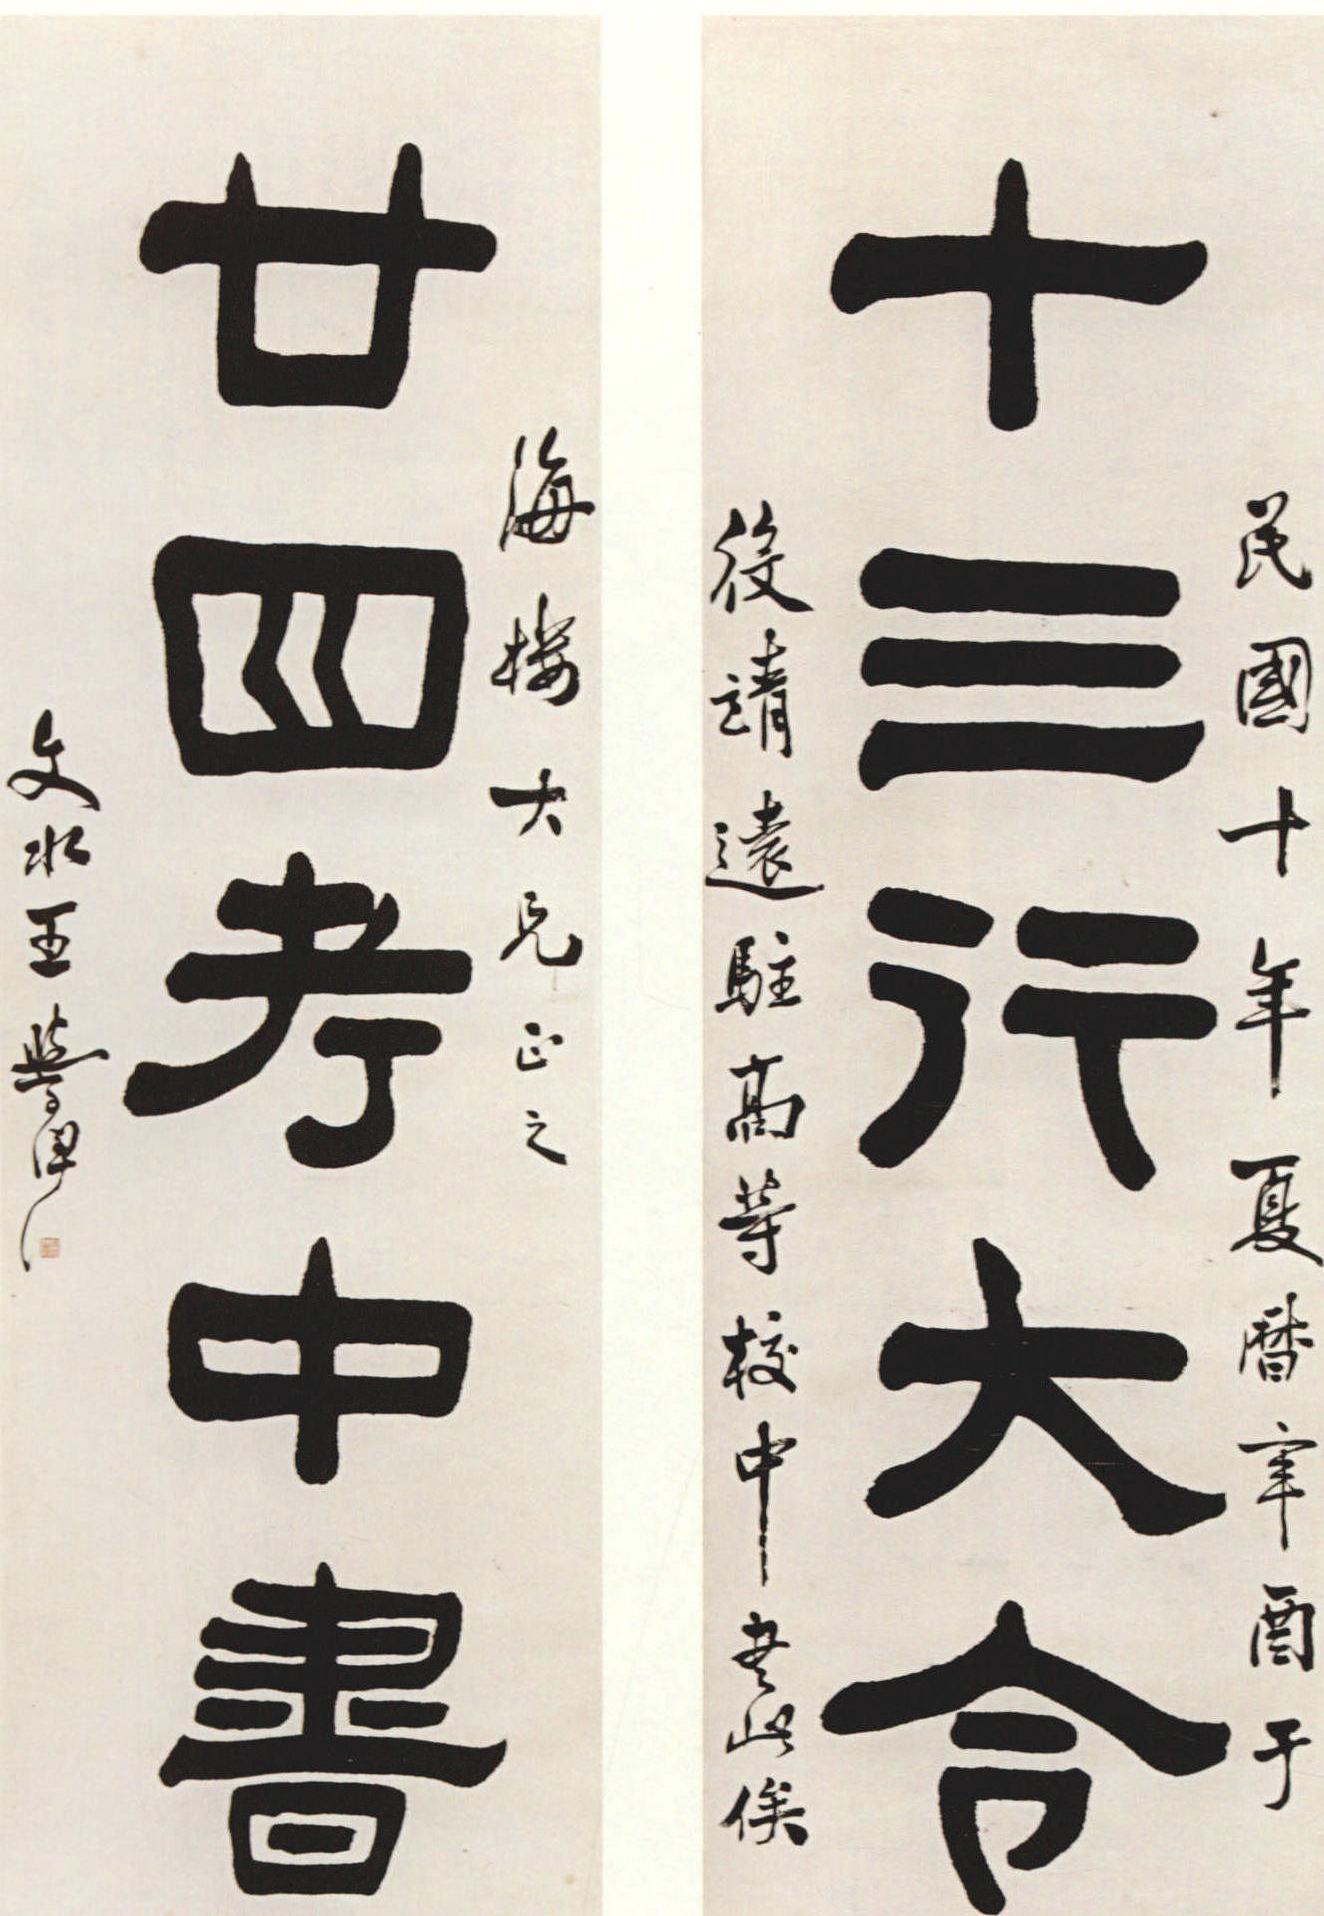 民國十年夏暦辛酉于
十三行大令
役靖遠駐高等校中書此俟
海樓大兄正之
廿四考中書
文水王學伊